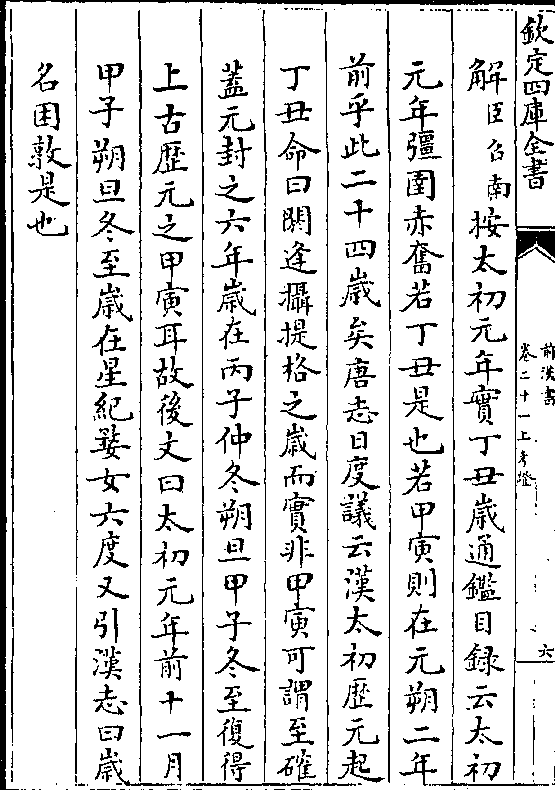 欽定四庫全書
前漢書
卷二十一上考證
六
解臣召南按太初元年實丁丑歲通鑑目録云太初
元年彊圉赤奮若丁丑是也若甲寅則在元朔二年
前乎此二十四歲矣唐志日度議云漢太初歷元起
丁丑命曰閼逢攝提格之歲而實非甲寅可謂至確
蓋元封之六年歲在丙子仲冬朔旦甲子冬至復得
上古歷元之甲寅耳故後文曰太初元年前十一月
甲子朔旦冬至歲在星紀婺女六度又引漢志曰歲
名困敦是也